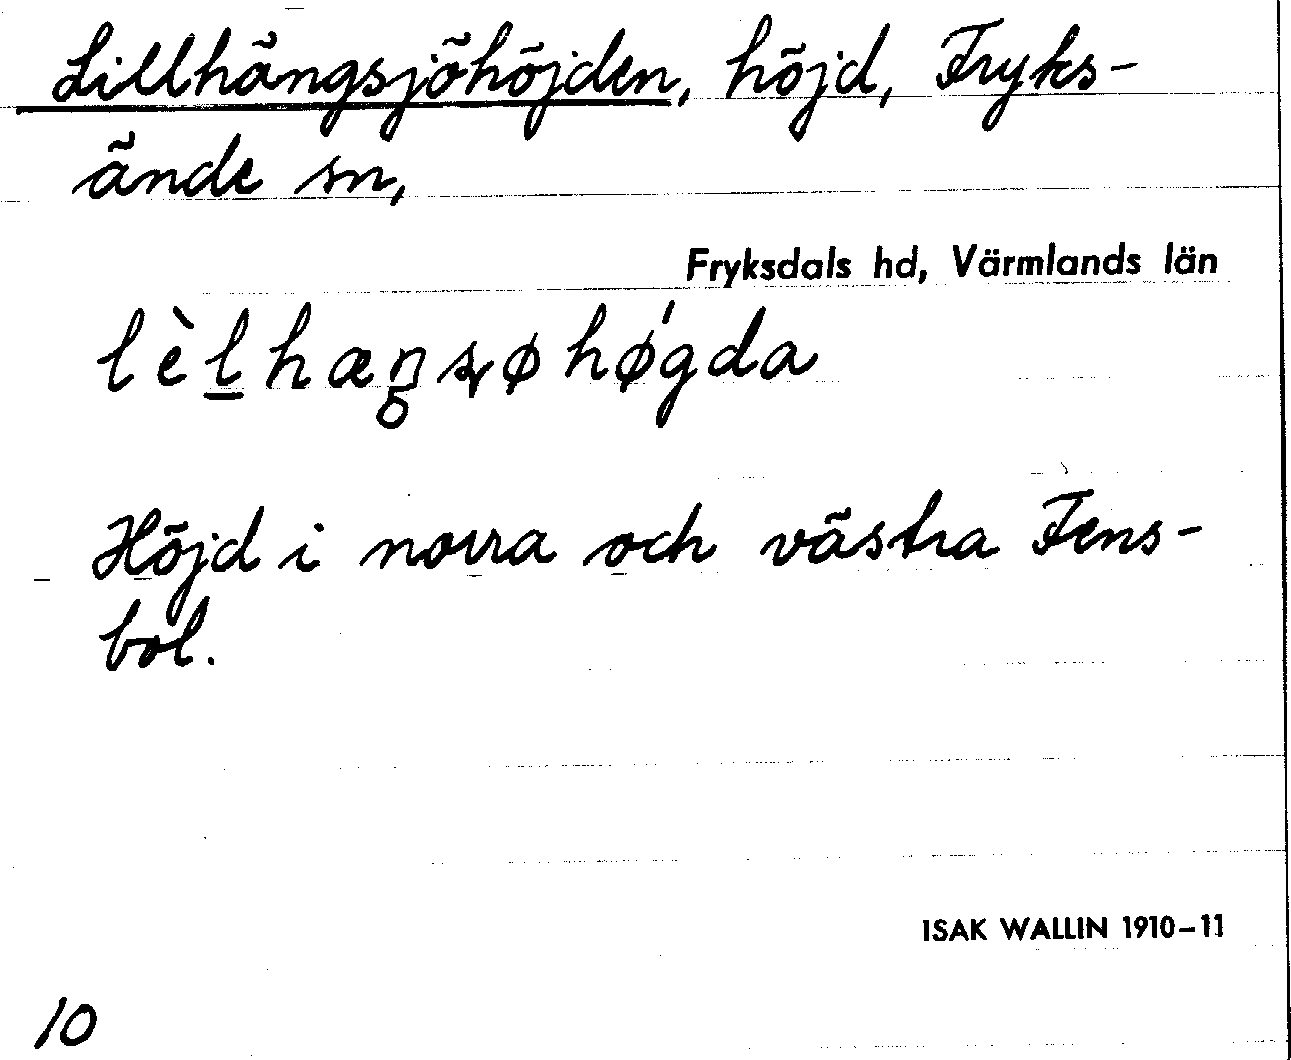 Lillhängsjöhöjden, höjd, Fryks-
ände sn,
Fryksdals hd, Värmlands län
Höjd i norra och västra Fens-
bol.
ISAK WALLIN 1910–11
10